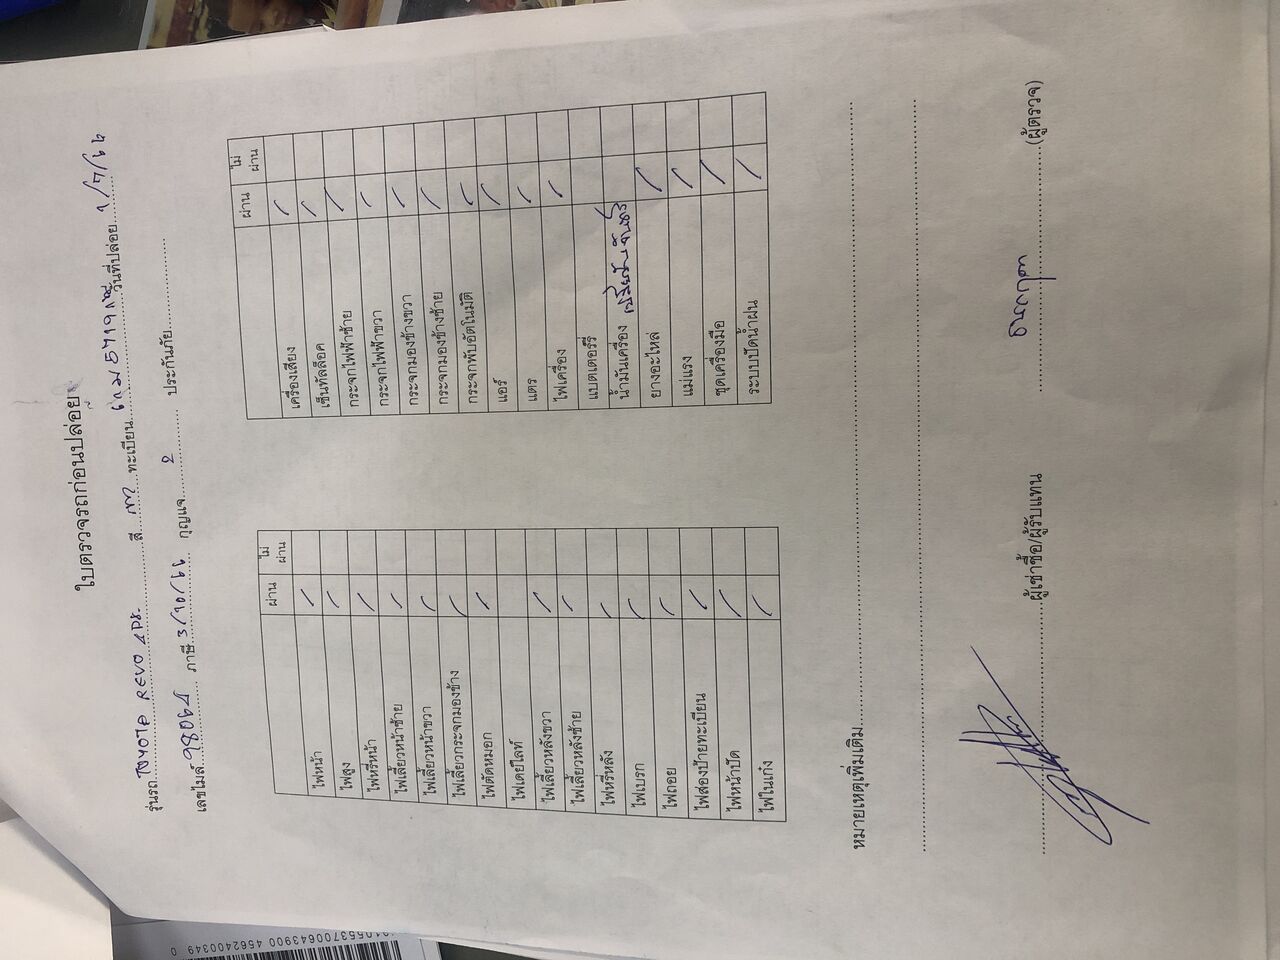 ใบตรวจรถก่อนปล่อย
รุ่นรถ TOYOTA REVO 4Dร. สี เทา ทะเบียน 5719 วันที่ปล่อย 1/7/66
เลขไมล์ 98064 ภาษี 3/10/66 กุญแจ 2 ประกันภัย
ผ่าน ไม่ผ่าน
ไฟหน้า /
ไฟสูง /
ไฟหรี่หน้า /
ไฟเลี้ยวหน้าซ้าย /
ไฟเลี้ยวหน้าขวา /
ไฟเลี้ยวกระจกมองข้าง /
ไฟตัดหมอก /
ไฟเดย์ไลท์
ไฟเลี้ยวหลังขวา /
ไฟเลี้ยวหลังซ้าย /
ไฟหรี่หลัง /
ไฟเบรก /
ไฟถอย /
ไฟส่องป้ายทะเบียน /
ไฟหน้าปัด /
ไฟในเก๋ง /
ผ่าน ไม่ผ่าน
เครื่องเสียง /
เซ็นทัลล็อค /
กระจกไฟฟ้าซ้าย /
กระจกไฟฟ้าขวา /
กระจกมองข้างขวา /
กระจกมองข้างซ้าย /
กระจกพับอัตโนมัติ /
แอร์ /
แตร /
ไฟเครื่อง /
แบตเตอร์รี่
น้ำมันเครื่อง
ยางอะไหล่ /
แม่แรง /
ชุดเครื่องมือ /
ระบบปัดน้ำฝน /
หมายเหตุเพิ่มเติม
ผู้เช่าซื้อ/ผู้รับแทน (ผู้ตรวจ)
4562400349